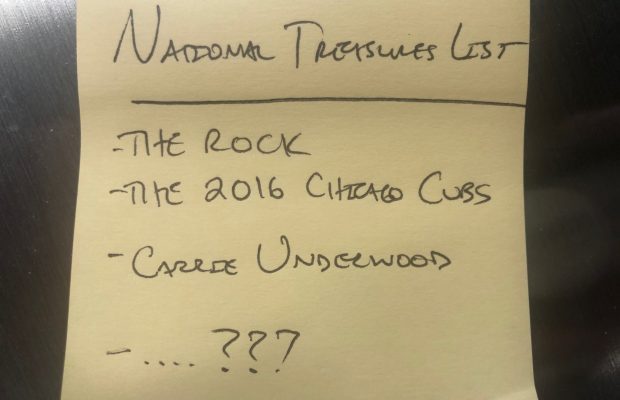 NATIONAL TREASURES LIST
- THE ROCK
- THE 2016 CHICAGO CUBS
- CARRIE UNDERWOOD
- .... ???